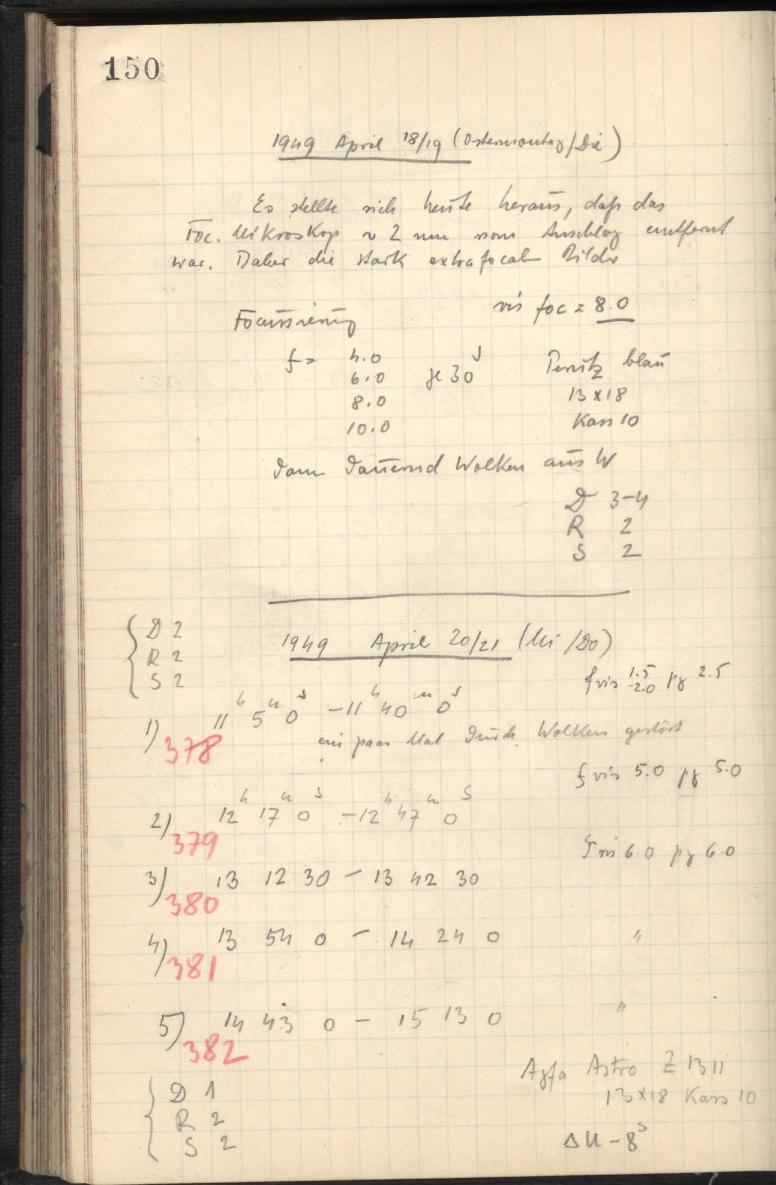 150
1949 April 18/19 (Ostermontag/Die)
Es stellte sich heute heraus, daß das
Foc. Mikroskop ~ 2 mm vom Anschlag entfernt
war. Daher die stark extrafocalen Bilder
Focussierung vis foc = 8.0
f = 4.0
6.0 je 30 s Perutz blau
8.0 13 x 18
10.0 Kass 10
Dann dauernd Wolken aus W
D 3-4
R 2
S 2
D 2
R 2
S 2
1949 April 20/21 (Mi/Do)
f vis 1.5 -2.0 pg 2.5
1) 11h 5m 0s - 11h 40m 0s
378 ein paar Mal durch Wolken gestört
f vis 5.0 pg 5.0
2) 12h 17m 0s - 12h 47m 0s
379
f vis 6.0 pg 6.0
3) 13 12 30 - 13 42 30
380
4) 13 54 0 - 14 24 0 "
381
5) 14 43 0 - 15 13 0 "
382
Agfa Astro Z 1311
13x18 Kass 10
D 1
R 2
S 2
ΔU - 8s